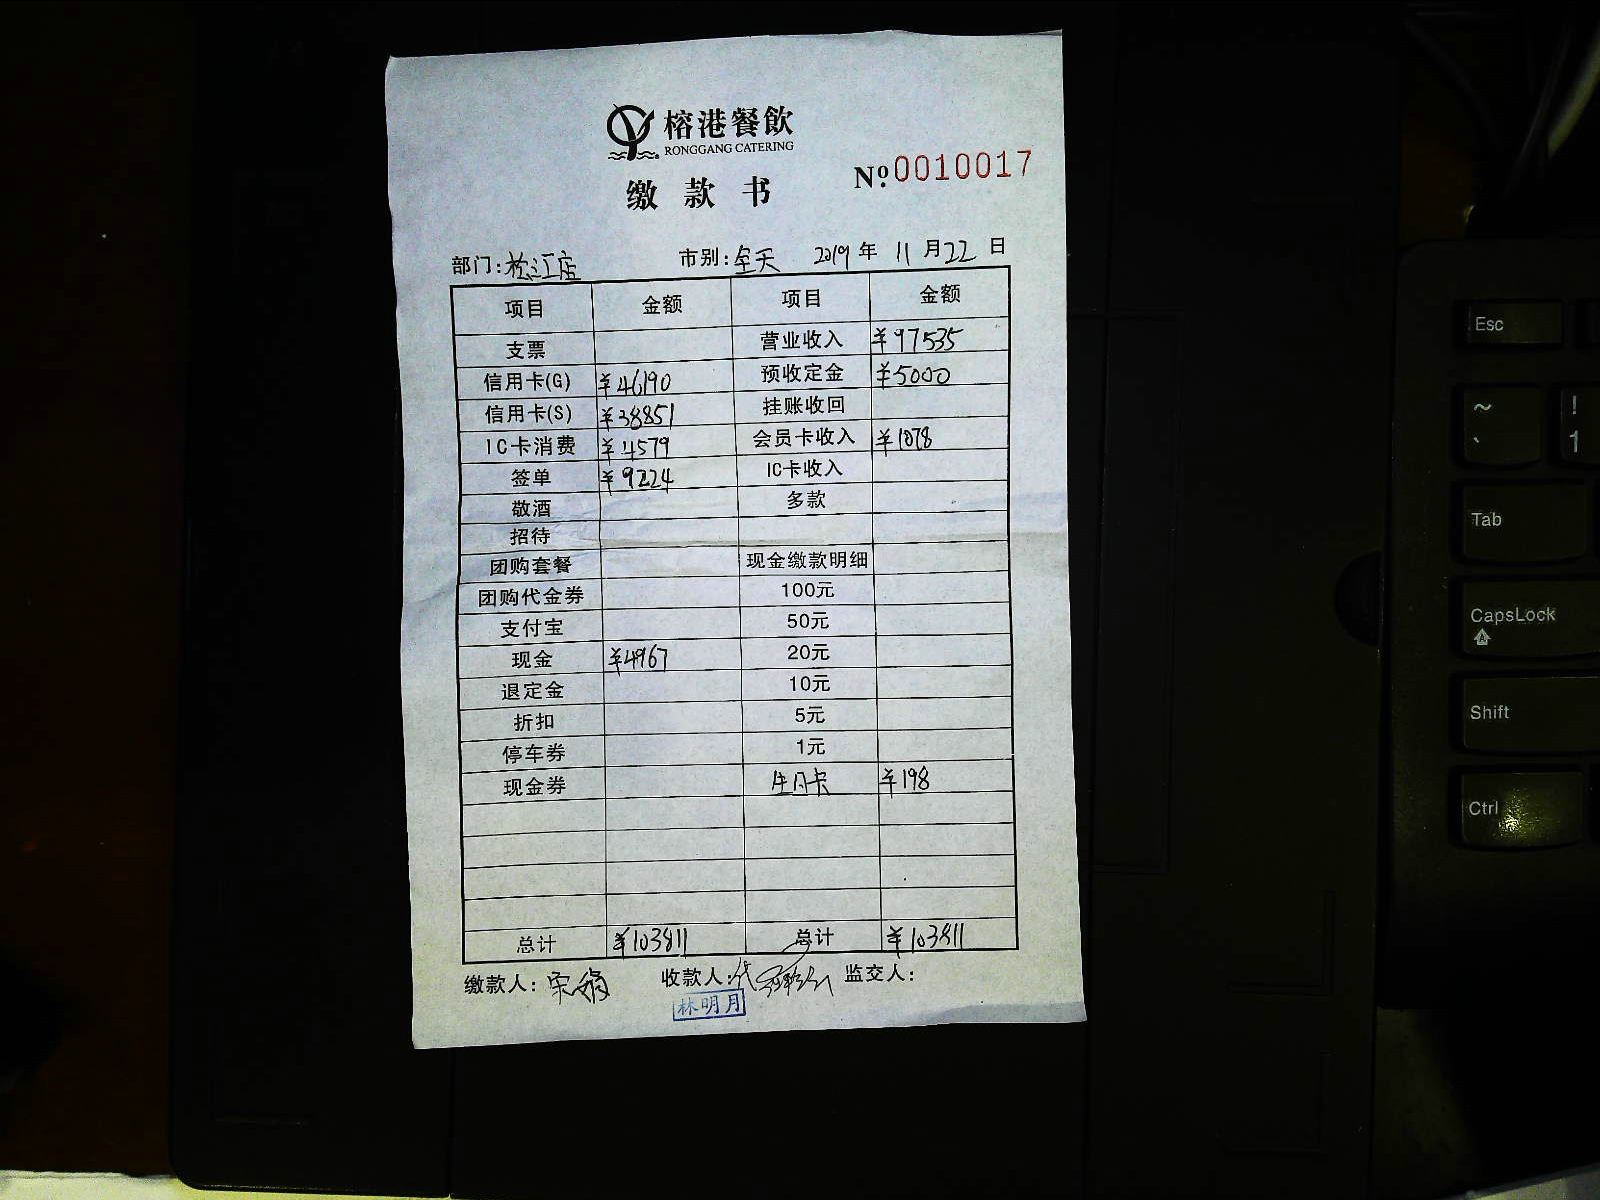 榕港餐飲
RONGGANG CATERING
缴款书
Nº.0010017
部门:松江店 市别:全天 2019年11月22日
项目 金额 项目 金额
支票 营业收入 ¥97535
信用卡(G) ¥46190 预收定金 ¥5000
信用卡(S) ¥38851 挂账收回
IC卡消费 ¥4579 会员卡收入 ¥1078
签单 ¥9224 IC卡收入
敬酒 多款
招待
团购套餐 现金缴款明细
团购代金券 100元
支付宝 50元
现金 ¥4967 20元
退定金 10元
折扣 5元
停车券 1元
现金券 牛肉卡 ¥198
总计 ¥103811 总计 ¥103811
缴款人:宋娟 收款人:代 监交人:
林明月
Esc
~
`
!
1
Tab
CapsLock
Shift
Ctrl